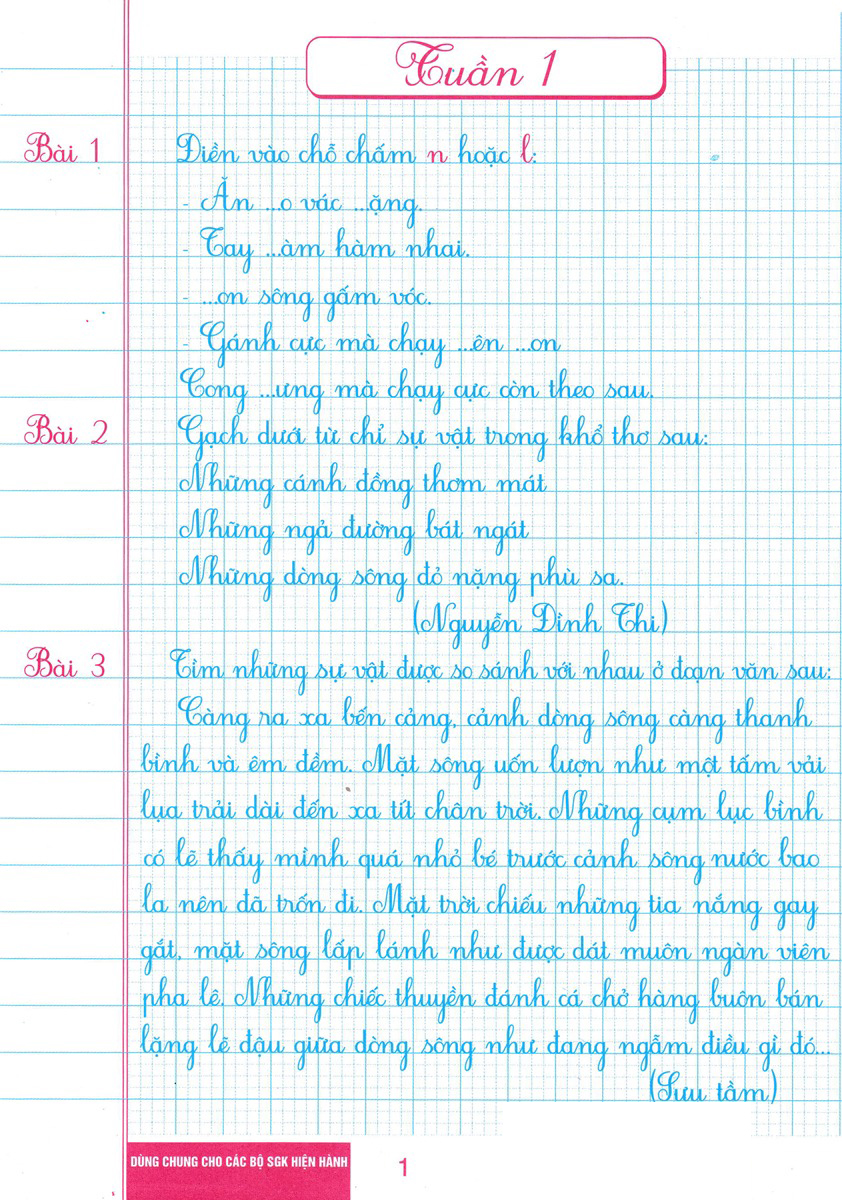 Tuần 1
Bài 1 Điền vào chỗ chấm n hoặc l:
- Ăn ...o vác ...ặng.
- Tay ...àm hàm nhai.
- ...on sông gấm vóc.
- Gánh cực mà chạy ...ên ...on
Cong ...ưng mà chạy cực còn theo sau.
Bài 2 Gạch dưới từ chỉ sự vật trong khổ thơ sau:
Những cánh đồng thơm mát
Những ngả đường bát ngát
Những dòng sông đỏ nặng phù sa.
(Nguyễn Đình Thi)
Bài 3 Tìm những sự vật được so sánh với nhau ở đoạn văn sau:
Càng ra xa bến cảng, cảnh dòng sông càng thanh
bình và êm đềm. Mặt sông uốn lượn như một tấm vải
lụa trải dài đến xa tít chân trời. Những cụm lục bình
có lẽ thấy mình quá nhỏ bé trước cảnh sông nước bao
la nên đã trốn đi. Mặt trời chiếu những tia nắng gay
gắt, mặt sông lấp lánh như được dát muôn ngàn viên
pha lê. Những chiếc thuyền đánh cá chở hàng buôn bán
lặng lẽ đậu giữa dòng sông như đang ngẫm điều gì đó...
(Sưu tầm)
DÙNG CHUNG CHO CÁC BỘ SGK HIỆN HÀNH 1